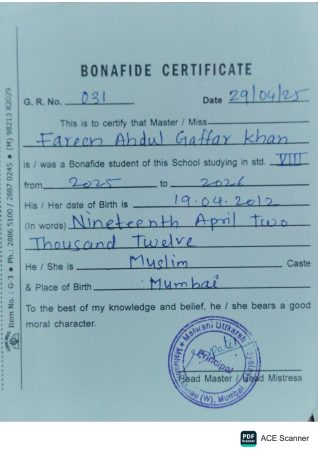 BONAFIDE CERTIFICATE
G. R. No. 031 Date 29/04/25
This is to certify that Master / Miss
Fareen Abdul Gaffar Khan
is / was a Bonafide student of this School studying in std. VIII
from 2025 to 2026
His / Her date of Birth is 19.04.2012
(In words) Nineteenth April Two
Thousand Twelve
He / She is Muslim Caste
& Place of Birth Mumbai
To the best of my knowledge and belief, he / she bears a good
moral character.
Malwani Uttkarsh
Principal
(W), Mumbai
Head Master / Head Mistress
Item No. : G-3 • Ph.: 2886 5100 / 2887 0245 • (M) 98213 82029
PDF
Scanner
ACE Scanner